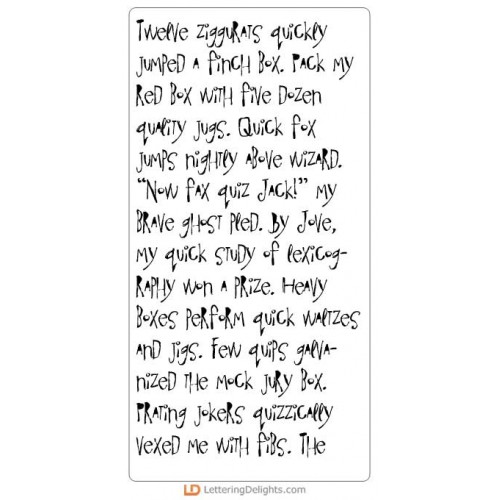 Twelve ziggurats quickly
jumped a finch box. Pack my
red box with five dozen
quality jugs. Quick fox
jumps nightly above wizard.
“Now fax quiz Jack!” my
brave ghost pled. By Jove,
my quick study of lexicog-
raphy won a prize. Heavy
boxes perform quick waltzes
and jigs. Few quips galva-
nized the mock jury box.
Prating jokers quizzically
vexed me with fibs. The
LD LetteringDelights.com